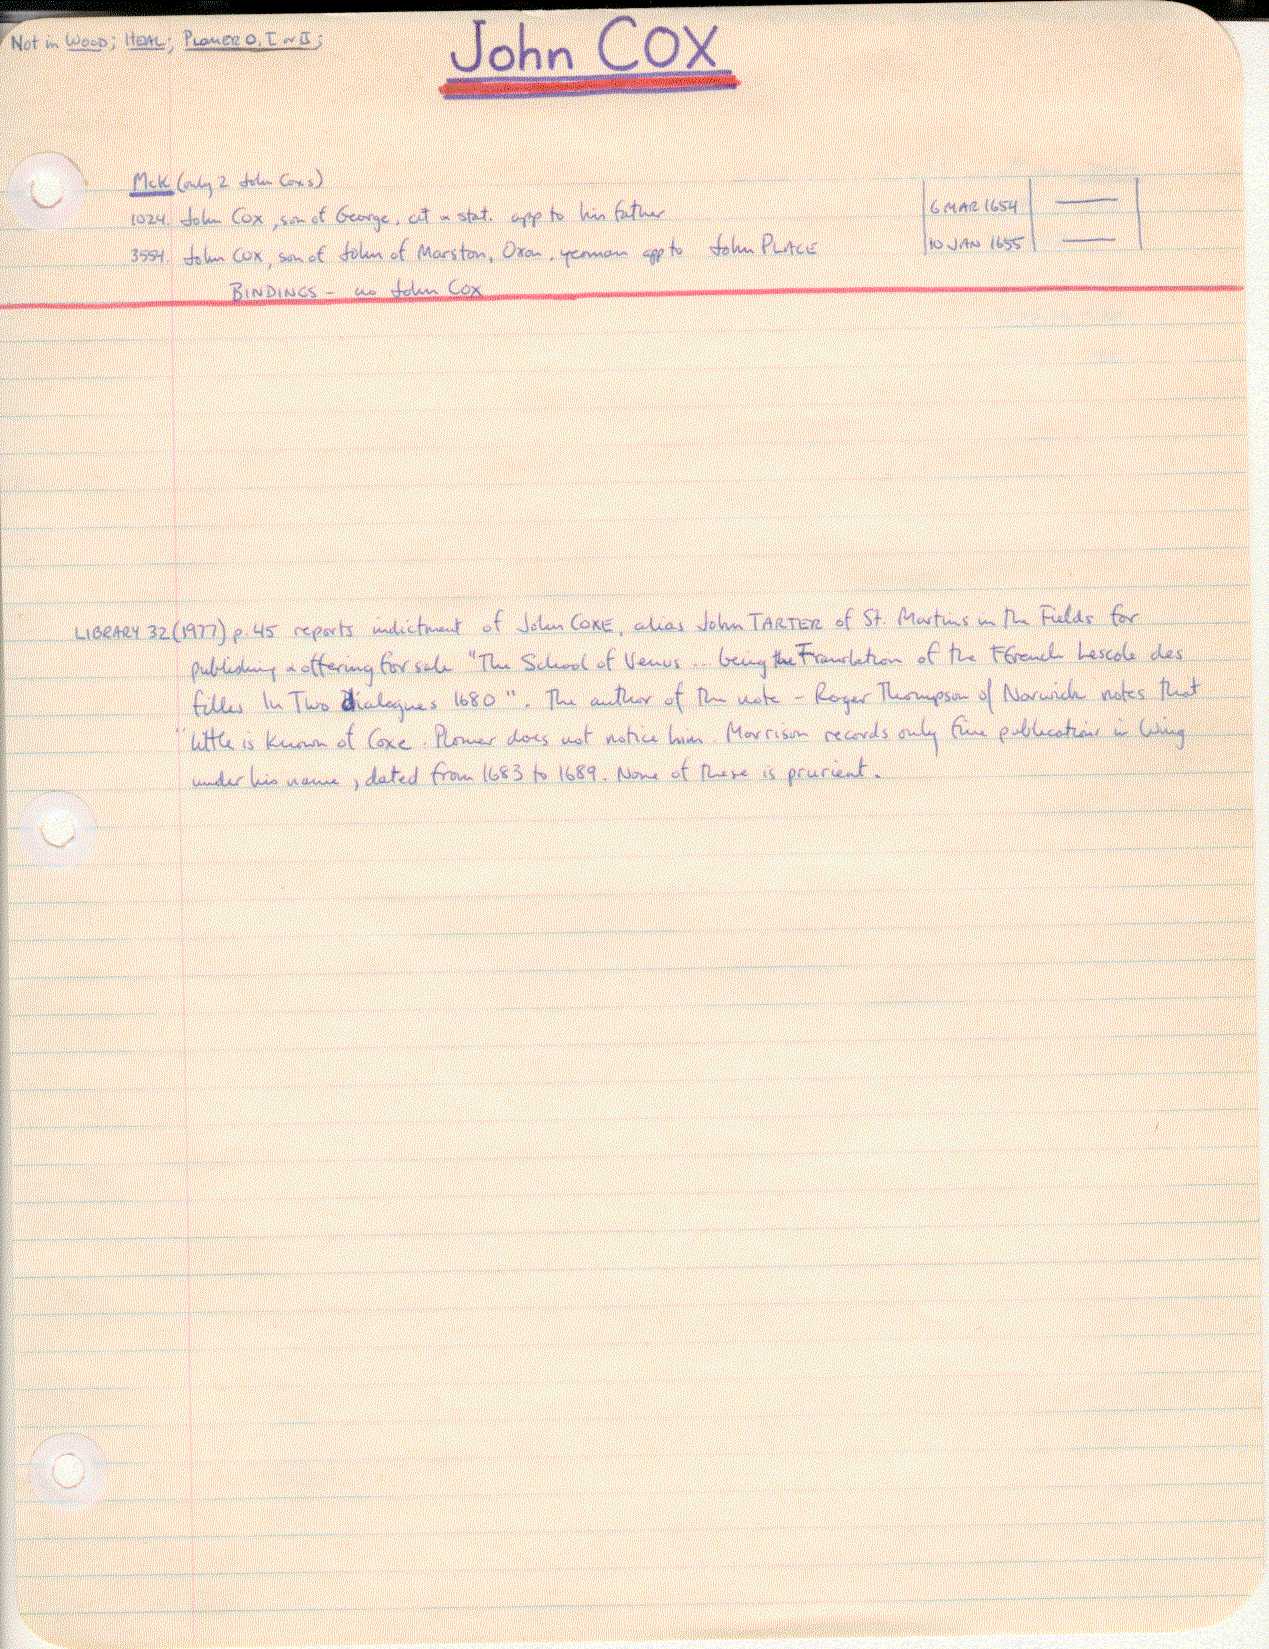 Not in WOOD; HEAL; PLOMER O, I or II;
John COX
McK (only 2 John Coxs)
1024. John Cox, son of George, cit & stat. app to his father 6 MAR 1654 —
3554. John Cox, son of John of Marston, Oxon, yeoman app to John PLACE 10 JAN 1655 —
BINDINGS - no John Cox
LIBRARY 32 (1977) p.45 reports indictment of John COXE, alias John TARTER of St. Martins in the Fields for
publishing & offering for sale "The School of Venus ... being the Translation of the FFrench Lescole des
filles In Two Dialogues 1680". The author of the note - Roger Thompson of Norwich notes that
"little is known of Coxe. Plomer does not notice him. Morrison records only five publications in Wing
under his name, dated from 1683 to 1689. None of these is prurient.